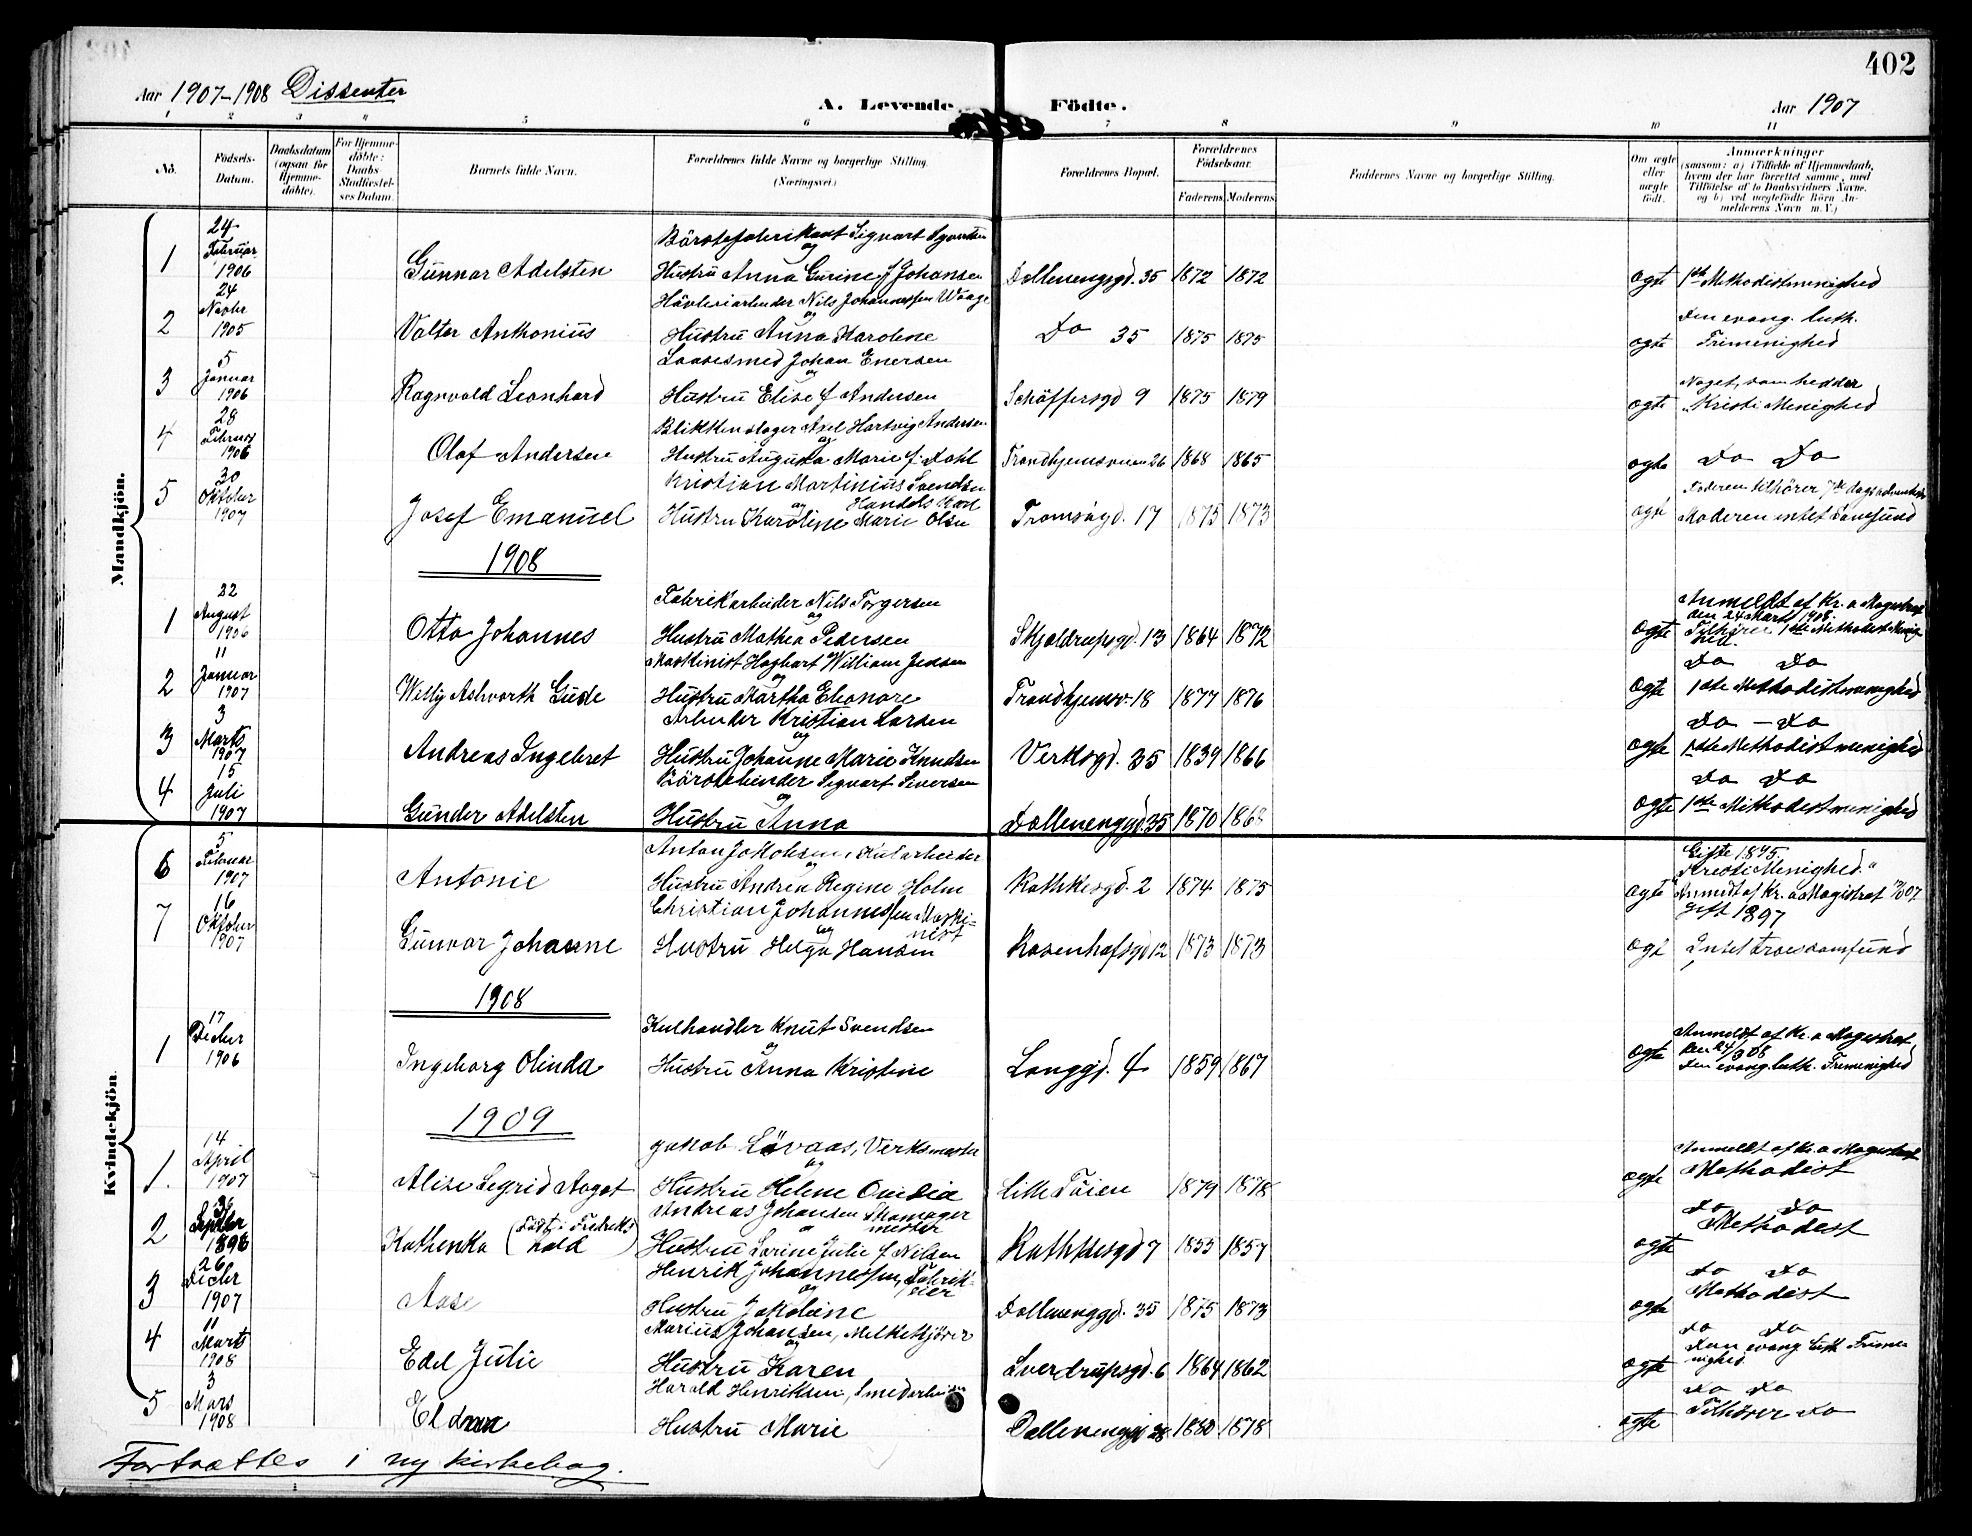 402
Aar 1907-1908 Dissenter
A. Levende Födte.
Aar 1907
1 2 3 4 5 6 7 8 9 10 11
No.
Födsels-Datum.
Daabsdatum (ogsaa for Hjemmedöbte).
For Hjemmedöbte: Daabs Stadfæstelses Datum.
Barnets fulde Navn.
Forældrenes fulde Navne og borgerlige Stilling. (Næringsvei.)
Forældrenes Bopæl.
Forældrenes Födselsaar.
Faderens Moderens
Faddernes Navne og borgerlige Stilling.
Om ægte eller uægte födt.
Anmærkninger
(saasom: a) i Tilfælde af Hjemmedaab, hvem der har forrettet samme, med Tilföielse af to Daabsvidners Navne. og b) ved uægtefödte Börn Anmelderens Navn m. V.)
Mandkjön.
1 24 Februar 1906 Gunnar Adelsten Börstefabrikant Sigvart Syvertsen og Hustru Anna Gurine f Johansen Dællenenggd. 35 1872 1872 ægte 1ste Methodistmenighed
2 24 Novbr 1905 Valter Anthonius Hövleriarbeider Nils Johannessen Waage og Hustru Anna Karoline Do 35 1875 1875 ægte Den evang. luth. Frimenighed
3 5 Januar 1906 Ragnvald Leonhard Laasesmed Johan Enersen og Hustru Elise f Andersen Schöffersgd 9 1875 1879 ægte Noget, som hedder "Kristi Menighed
4 28 Februar 1906 Olaf Andersen Blikkenslager Axel Hartvig Andersen og Hustru Augusta Marie f. Dahl Trondhjemsveien 26 1868 1865 ægte Do Do
5 30 Oktober 1907 Josef Emanuel Kristian Martinius Svendsen Handels Karl og Hustru Karoline Marie Olsen Tromsögd. 17 1875 1873 ægte Faderen tilhörer 7de dags adventister Moderen intet Samfund
1908
1 22 August 1906 Otto Johannes Fabrikarbeider Nils Torgersen og Hustru Mathea Pedersen Skjoldrupsgd. 13 1864 1872 ægte Anmeldt af Kr.a Magistrat den 24 Marts 1908. Tilhörer 1ste Methodist Menighed.
2 11 Januar 1907 Willy Ashworth Gude Maskinist Hagbart William Jensen og Hustru Martha Eleonore Trondhjemsv. 18 1877 1876 ægte Do Do 1ste Methodistmenighed
3 3 Marts 1907 Andreas Ingebret Arbeider Kristian Larsen og Hustru Johanne Marie Knudsen Verksgd. 35 1839 1866 ægte Do - Do 1ste Methodistmenighed
4 15 Juli 1907 Gunder Adelsten Börstebinder Sigvart Siversen og Hustru Anna Dællenenggd. 35 1870 1868 ægte Do Do 1ste Methodistmenighed
Kvindekjön
6 5 Februar 1907 Antonie Anton Jakobsen, Kularbeider og Hustru Andrea Regine Holm Rathkesgd. 2 1874 1875 ægte Gifte 1895. "Kristi Menighed" Anmeldt af Kr.a Magistrat
7 16 Oktober 1907 Gunvor Johanne Christian Johannessen Maskinist og Hustru Helga Hansen Rosenhofsgd 12 1873 1873 ægte gift 1897 Intet troessamfund
1908
1 17 Decbr 1906 Ingeborg Olinda Kulhandler Knut Svendsen og Hustru Anna Kristine Langgd. 4 1859 1867 ægte Anmeldt af Kr.a Magistrat den 24/3 08 Den evang. luth. Frimenighed
1909
1. 14 April 1907 Alise Sigrid Aagot Jakob Lövaas, Verksmester og Hustru Helene Ovidia Lille Töien 1879 1878 ægte Anmeldt af Kr.a Magistrat Methodist
2 Septbr 1896 Kathenka (Födt i Fredrikshald) Andreas Johansen Skomagermester og Hustru Larine Julie f. Nilsen Rathkesgd 7 1855 1857 ægte Do Do Methodist
3 26 Decbr 1907 Aase Henrik Johannessen, Fabrikeier og Hustru Jakobine Dællenenggd. 35 1875 1873 ægte Do Do Methodist
4 11 Marts 1908 Edel Julie Marius Johansen, Melkekjörer og Hustru Karen Sverdrupsgd. 6 1864 1862 ægte Do Do Den evang luth Frimenighed
5 3 Mars 1908 Eldna Harald Henriksen, Smedarbeider Hustru Marie Dællenenggd 28 1880 1878 ægte Do Do Tilhörer do
Fortsættes i ny kirkebog.